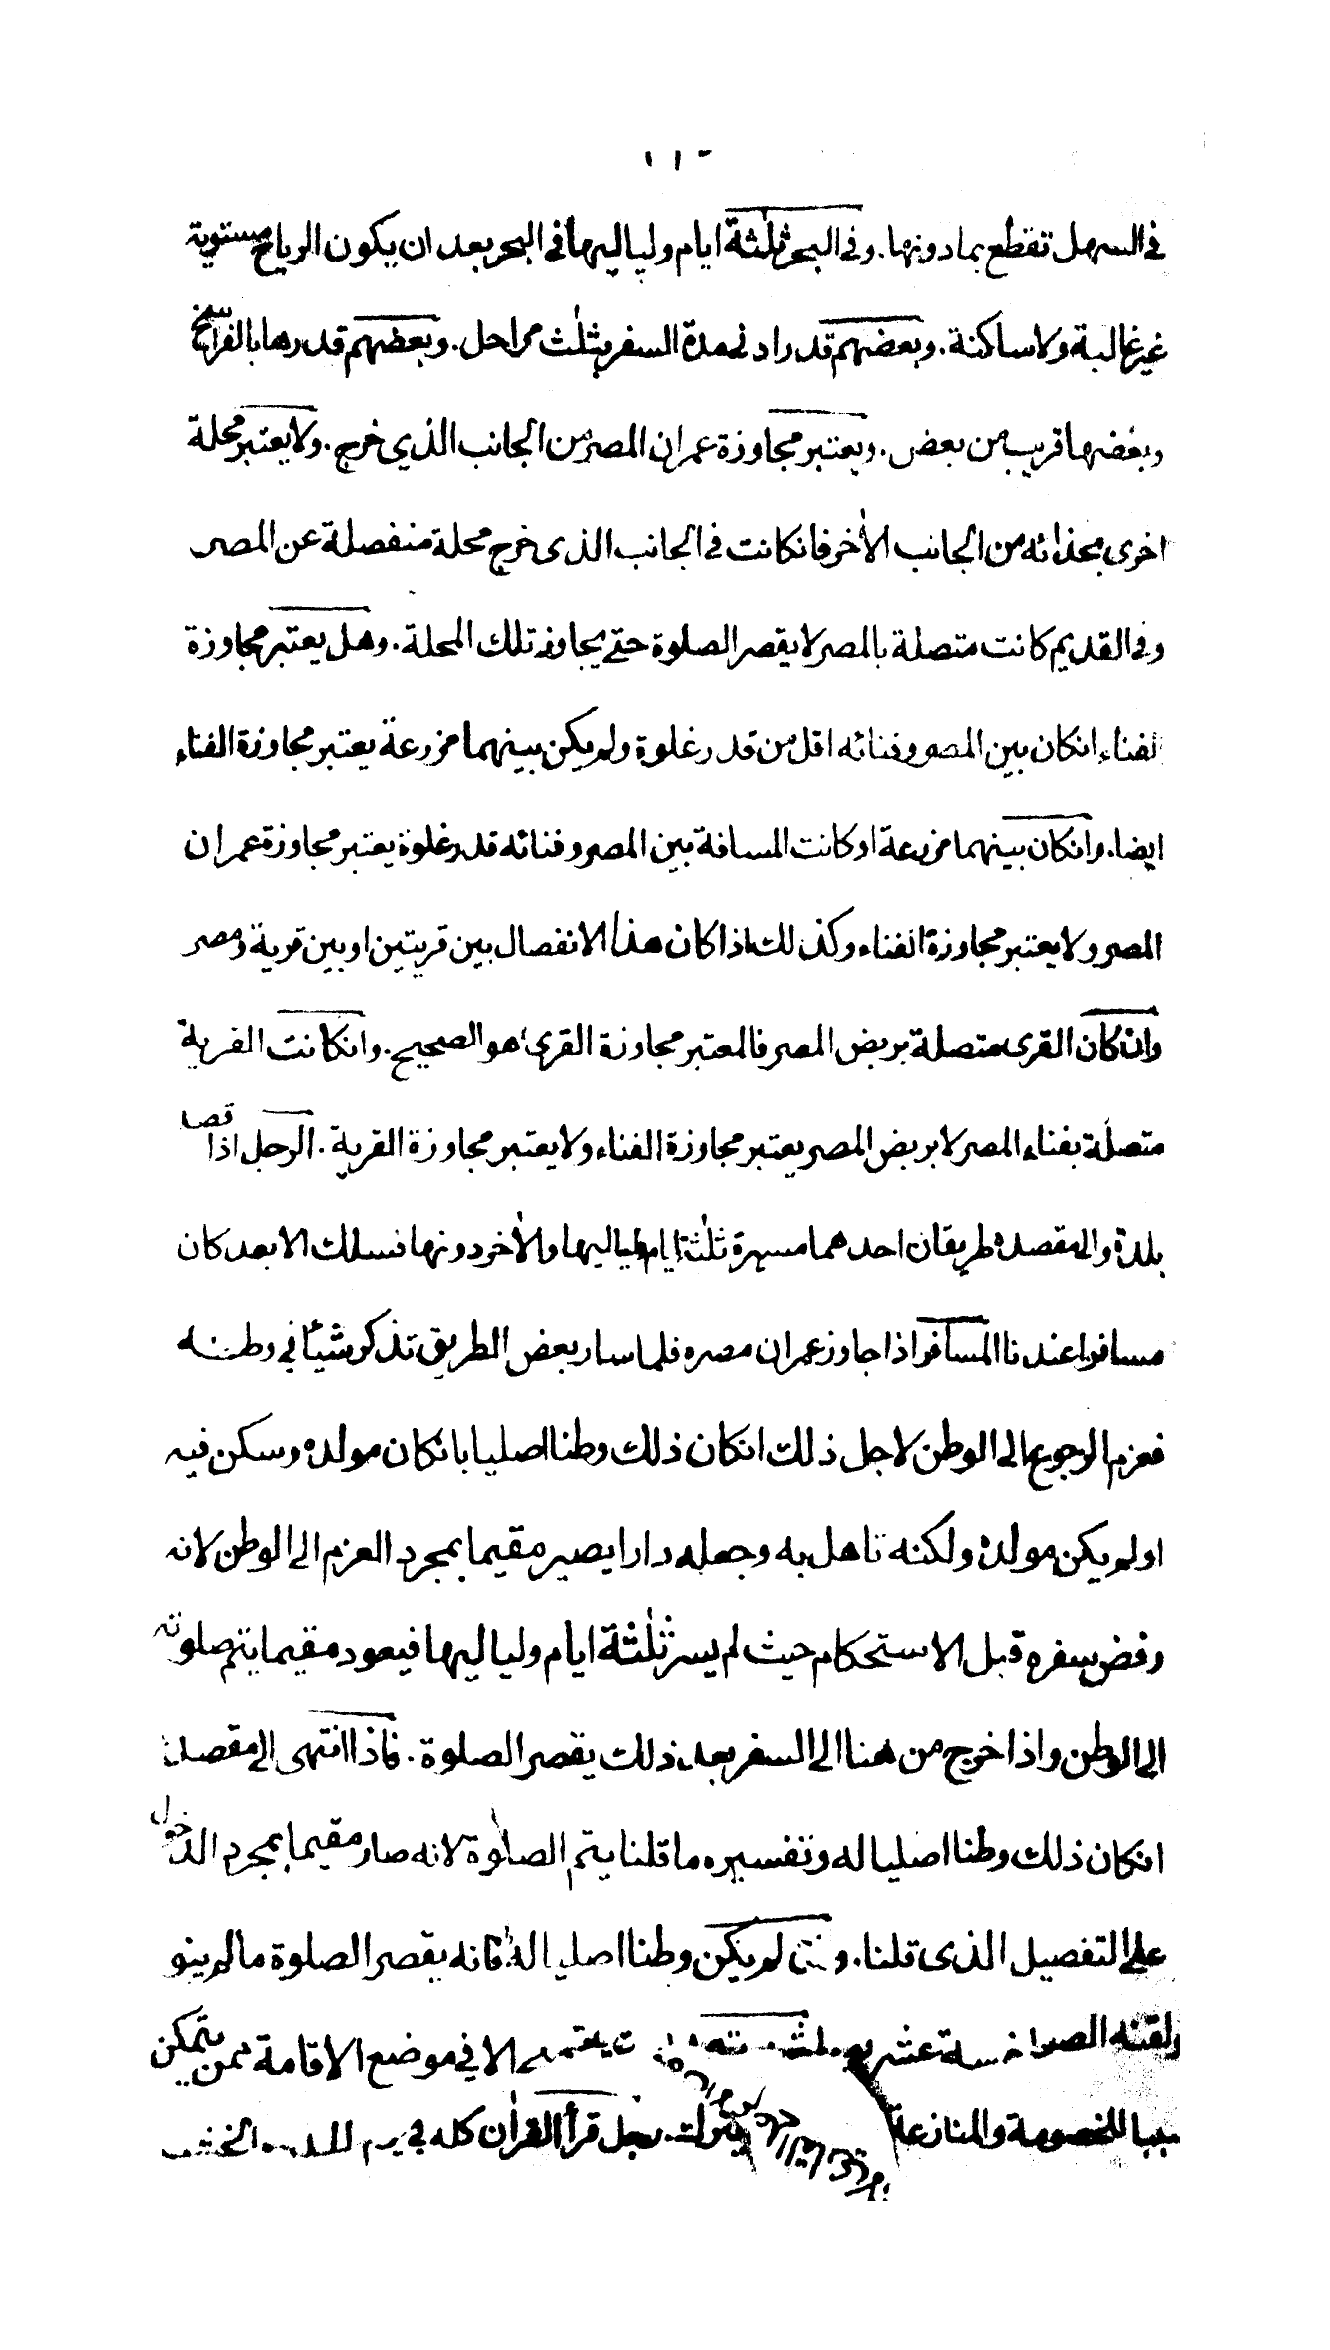 في السهل تقطع بمادونها. وفي البحر ثلٰثة ايام ولياليها في البحر بعد ان يكون الرياح مستوية
غير غالبة ولا ساكنة. وبعضهم قدراد في مدة السفر بثلٰث مراحل. وبعضهم قدرها بالفراسخ
وبعضها قريب من بعض. ويعتبر مجاوزة عمران المصر من الجانب الذي خرج. ولا يعتبر محلة
اخرى بحذائه من الجانب الأخر فانكانت في الجانب الذى خرج محلة منفصلة عن المصر
وفي القديم كانت متصلة بالمصر لا يقصر الصلوة حتى يجاوز تلك المحلة. وهل يعتبر مجاوزة
لفناء انكان بين المصر وفنائه اقل من قدر غلوة ولم يكن بينهما مزرعة يعتبر مجاوزة الفناء
ايضا. وانكان بينهما مزرعة او كانت المسافة بين المصر وفنائه قدر غلوة يعتبر مجاوزة عمران
المصر ولا يعتبر مجاوزة الفناء وكذلك اذا كان هذا الانفصال بين قريتين او بين قرية ومصر
وان كان القرى متصلة بربض المصر فالمعتبر مجاوزة القرى هو الصحيح. وانكانت القرية
متصلة بفناء المصر لا بربض المصر يعتبر مجاوزة الفناء ولا يعتبر مجاوزة القرية. الرجل اذا قصد
بلدة والى مقصده طريقان احدهما مسيرة ثلٰثة ايام ولياليها والأخر دونها فسلك الابعد كان
مسافرا عندنا المسافر اذا جاوز عمران مصره فلما سار بعض الطريق تذكر شيئا في وطنه
فعزم الرجوع الى الوطن لاجل ذلك انكان ذلك وطنا اصليا بانكان مولده وسكن فيه
او لم يكن مولده ولكنه تاهل به وجعله دارا يصير مقيما بمجرد العزم الى الوطن لانه
رفض سفره قبل الاستحكام حيث لم يسر ثلٰثة ايام ولياليها فيعود مقيما يتم صلوته
الى الوطن واذا خرج من هنا الى السفر بعد ذلك يقصر الصلوة. فاذا انتهى الى مقصده
انكان ذلك وطنا اصليا له وتفسيره ما قلنا يتم الصلوة لانه صار مقيما بمجرد الدخول
على التفصيل الذى قلنا. و لم يكن وطنا اصليا له فانه يقصر الصلوة ما لم ينو
خمسة عشر الا في موضع الاقامة ممن يتمكن
سببا للخصومة والمنازعة يترك. رجل قرأ القرأن كله في